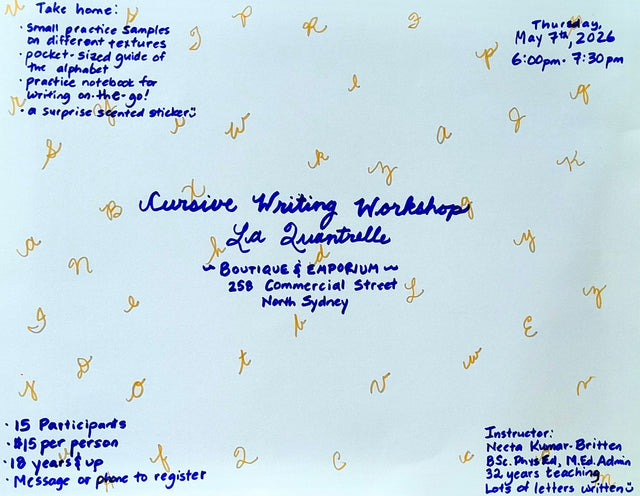 Take home:
· small practice samples
on different textures
· pocket-sized guide of
the alphabet
· practice notebook for
writing on-the-go!
· a surprise scented sticker☺
Thursday,
May 7th, 2026
6:00pm - 7:30pm
Cursive Writing Workshop
La Quantrelle
~ BOUTIQUE & EMPORIUM ~
258 Commercial Street
North Sydney
· 15 Participants
· $15 per person
· 18 years & up
· Message or phone to register
Instructor:
Neeta Kumar-Britten
BSc. Phys Ed, M.Ed. Admin
32 years teaching
Lots of letters written☺